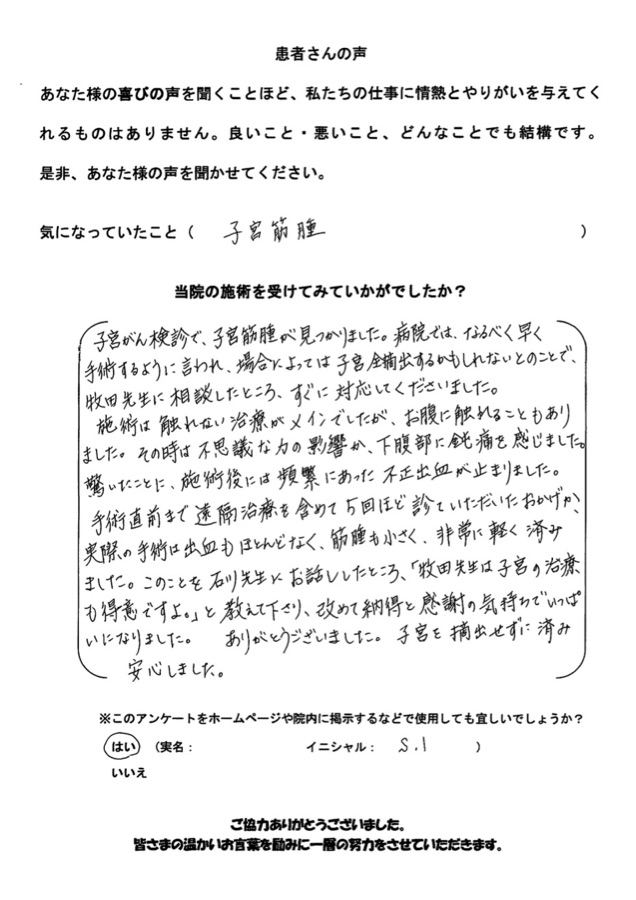 患者さんの声
あなた様の喜びの声を聞くことほど、私たちの仕事に情熱とやりがいを与えてく
れるものはありません。良いこと・悪いこと、どんなことでも結構です。
是非、あなた様の声を聞かせてください。
気になっていたこと（ 子宮筋腫 ）
当院の施術を受けてみていかがでしたか？
子宮がん検診で、子宮筋腫が見つかりました。病院では、なるべく早く
手術するように言われ、場合によっては子宮全摘出するかもしれないとのことで、
牧田先生に相談したところ、すぐに対応してくださいました。
施術は触れない治療がメインでしたが、お腹に触れることもあり
ました。その時は不思議な力の影響か、下腹部に鈍痛を感じました。
驚いたことに、施術後には頻繁にあった不正出血が止まりました。
手術直前まで遠隔治療を含めて5回ほど診ていただいたおかげか、
実際の手術は出血もほとんどなく、筋腫も小さく、非常に軽く済み
ました。このことを石川先生にお話ししたところ、「牧田先生は子宮の治療
も得意ですよ。」と教えて下さり、改めて納得と感謝の気持ちでいっぱ
いになりました。 ありがとうございました。子宮を摘出せずに済み
安心しました。
※このアンケートをホームページや院内に掲示するなどで使用しても宜しいでしょうか？
はい （実名： イニシャル： S.I ）
いいえ
ご協力ありがとうございました。
皆さまの温かいお言葉を励みに一層の努力をさせていただきます。